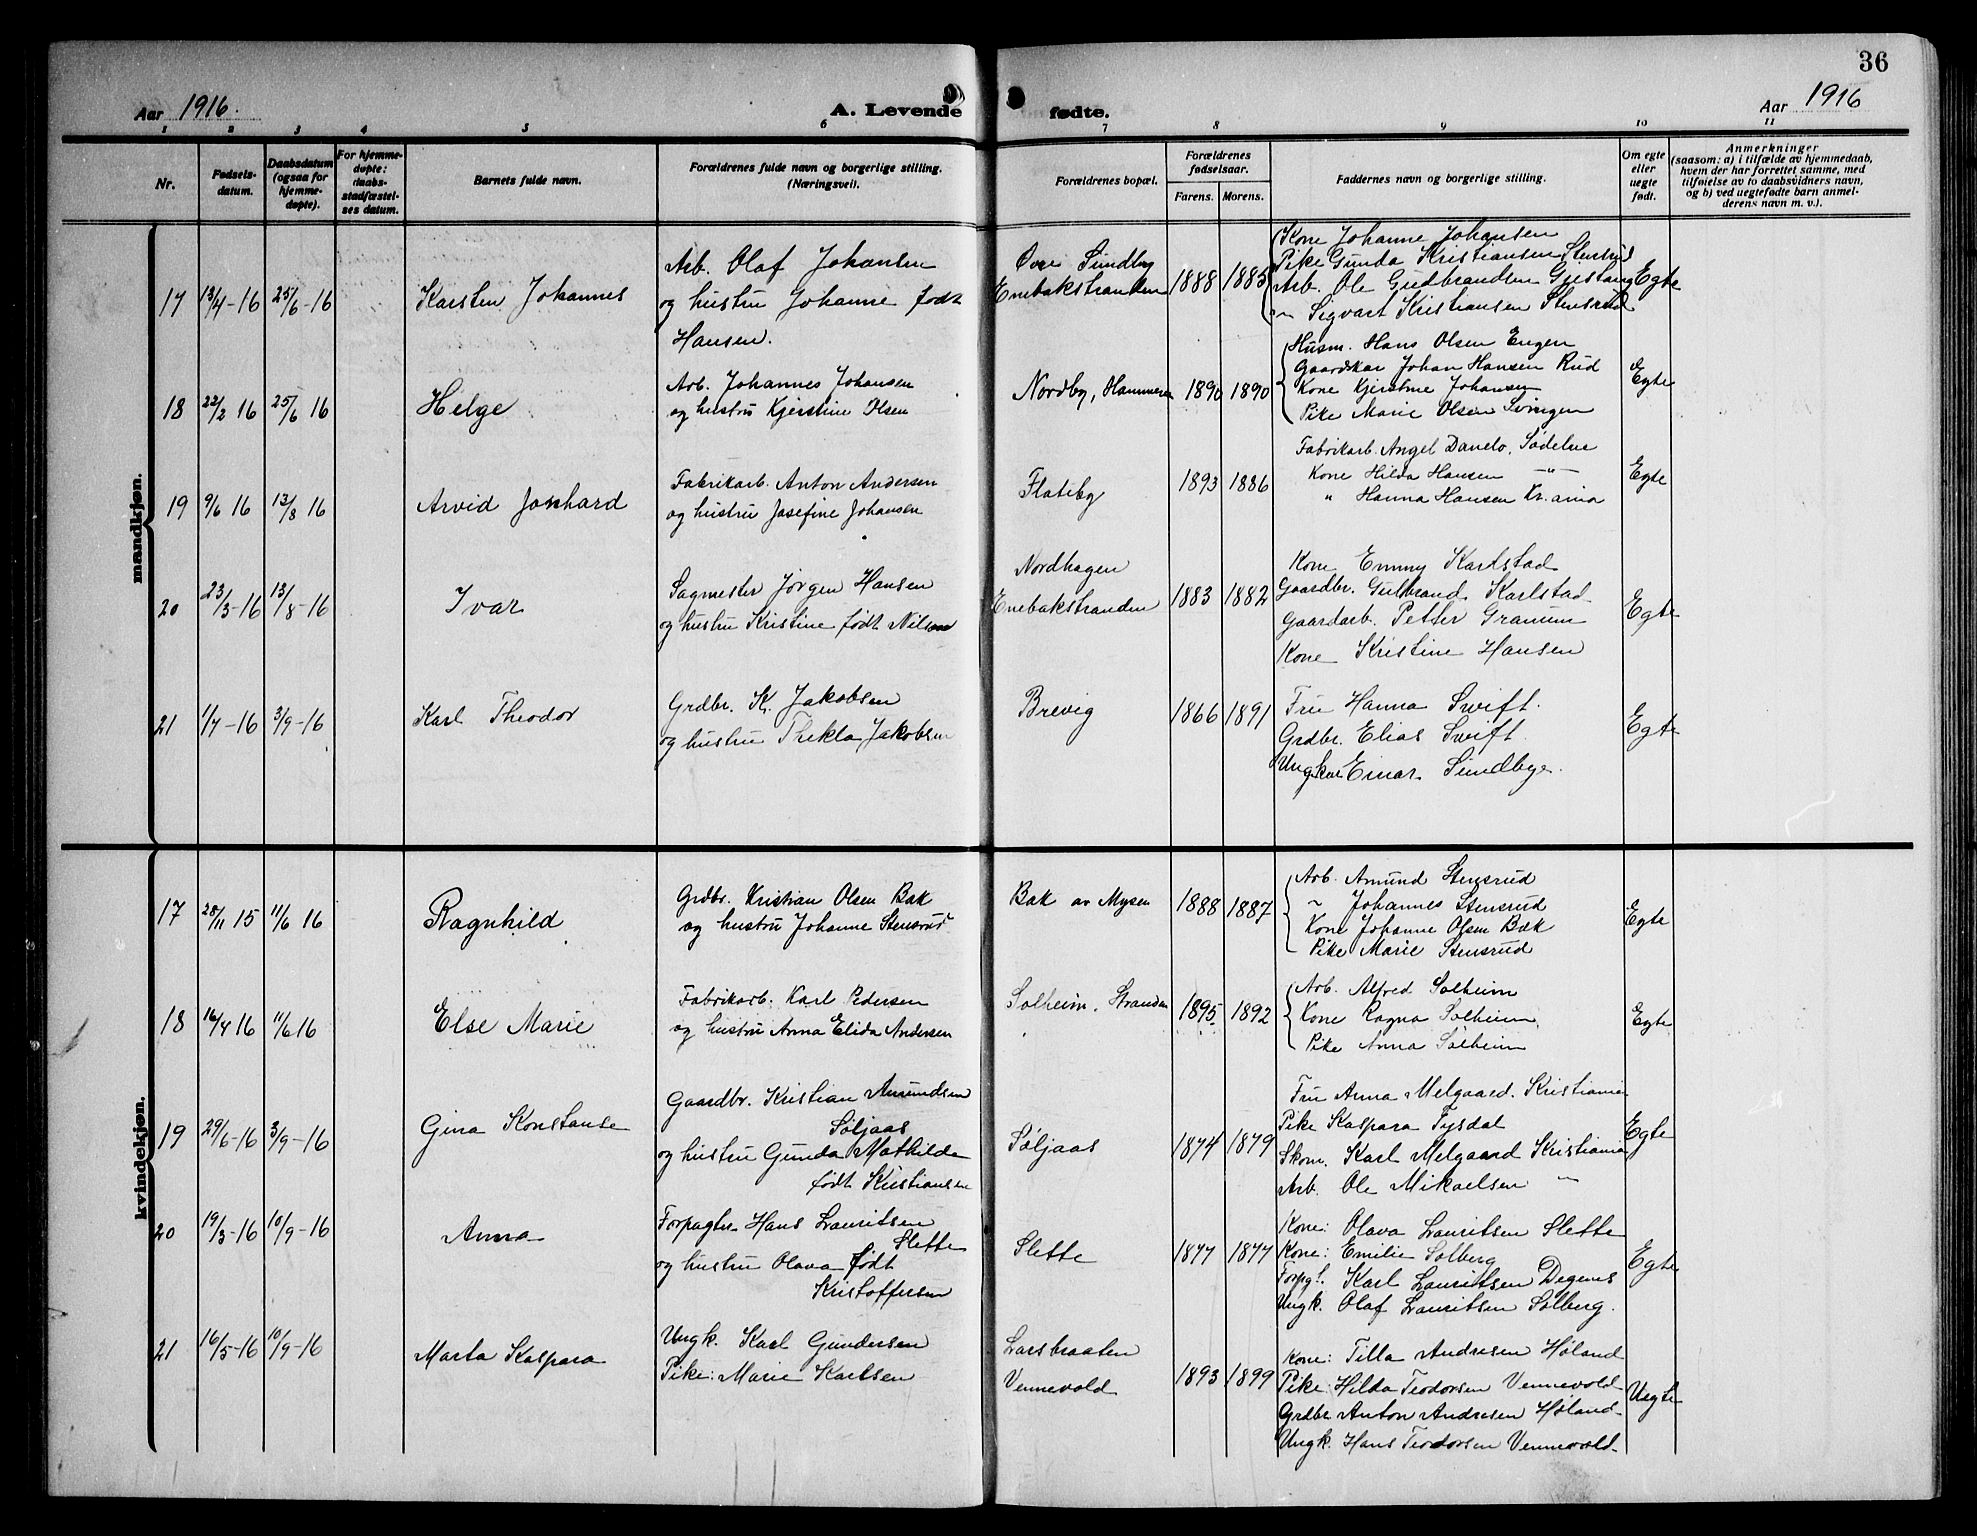 36
Aar 1916. A. Levende fødte. Aar 1916
1 2 3 4 5 6 7 8 9 10 11
Nr.
Fødsels-
datum.
Daabsdatum
(ogsaa for
hjemme-
døpte).
For hjemme-
døpte:
daabs-
stadfæstel-
ses datum.
Barnets fulde navn.
Forældrenes fulde navn og borgerlige stilling.
(Næringsvei).
Forældrenes bopæl.
Forældrenes
fødselsaar.
Farens. Morens.
Faddernes navn og borgerlige stilling.
Om egte
eller
uegte
født.
Anmerkninger
(saasom: a) i tilfælde av hjemmedaab,
hvem der har forrettet samme, med
tilføielse av to daabsvidners navn,
og b) ved uegtefødte barn anmel-
derens navn m. v.).
mandkjøn.
17 13/4-16 25/6-16 Karsten Johannes
Arb. Olaf Johansen
og hustru Johanne født
Hansen.
Øvre Sundby
Enebakstranden
1888 1885
Kone Johanne Johansen
Pike Gunda Kristiansen Stensrud
Arb. Ole Gudbrandsen
" Sigvart Kristiansen Stensrud
Egte
18 22/2 16 25/6 16 Helge
Arb. Johannes Johansen
og hustru Kjerstine Olsen
Nordby, Hammeren 1890 1890
Husm. Hans Olsen Engen
Gaardskar Johan Hansen Rud
Kone Kjerstine Johansen
Pike Marie Olsen Svingen
Egte
19 9/6 16 13/8 16 Arvid Jonhard
Fabrikarb. Anton Andersen
og hustru Josefine Johansen
Flateby 1893 1886
Fabrikarb. Angel Danelo,
Kone Hilda Hansen — " —
" Hanna Hansen Kr.ania
Egte
20 23/3-16 13/8-16 Ivar
Sagmester Jørgen Hansen
og hustru Kristine født Nilsen
Nordhagen
Enebakstranden
1883 1882
Kone Emmy Karlstad
Gaardbr. Gulbrand Karlstad
Gaardarb. Petter Granum
Kone Kristine Hansen
Egte
21 1/7-16 3/9-16 Karl Theodor
Grdbr. K. Jakobsen
og hustru Thekla Jakobsen
Brevig 1866 1891
Fru Hanna Swift.
Grdbr. Elias Swift.
Ungkar Einar Sundbye.
Egte
kvindekjøn.
17 28/11 15 11/6 16 Ragnhild
Grdbr. Kristian Olsen Bak
og hustru Johanne Stensrud
Bak av Mysen 1888 1887
Arb. Amund Stensrud
" Johannes Stensrud
Kone Johanne Olsen Bak
Pike Marie Stensrud
Egte
18 16/4 16 11/6 16 Else Marie
Fabrikarb. Karl Pedersen
og hustru Anna Elida Andersen
Solheim, Stranden 1895 1892
Arb. Alfred Solheim
Kone Ragna Solheim,
Pike Anna Solheim
Egte
19 29/6-16 3/9-16 Gina Konstanse
Gaardbr. Kristian Amundsen
Søljaas
og hustru Gunda Mathilde
født Kristiansen
Søljaas 1874 1879
Fru Anna Melgaard. Kristiania
Pike Kaspara Tysdal
Skom. Karl Melgaard Kristiania
Arb. Ole Mikaelsen "
Egte
20 19/3-16 10/9-16 Anna
Forpagter Hans Lauritsen
Slette
og hustru Olava født
Kristoffersen
Slette 1877 1877
Kone: Olava Lauritsen Slette
Kone: Emilie Solberg
Forpgt. Karl Lauritsen Degnes
Ungk. Olaf Lauritsen Solberg.
Egte
21 16/5-16 10/9-16 Marta Kaspara
Ungk. Karl Gundersen
Pike: Marie Karlsen
Larsbraaten
Vennevold
1893 1899
Kone: Tilla Andresen Høland
Pike: Hilda Teodorsen Vennevold
Grdbr Anton Andresen Høland
Ungk. Hans Teodorsen Vennevold
Uegte